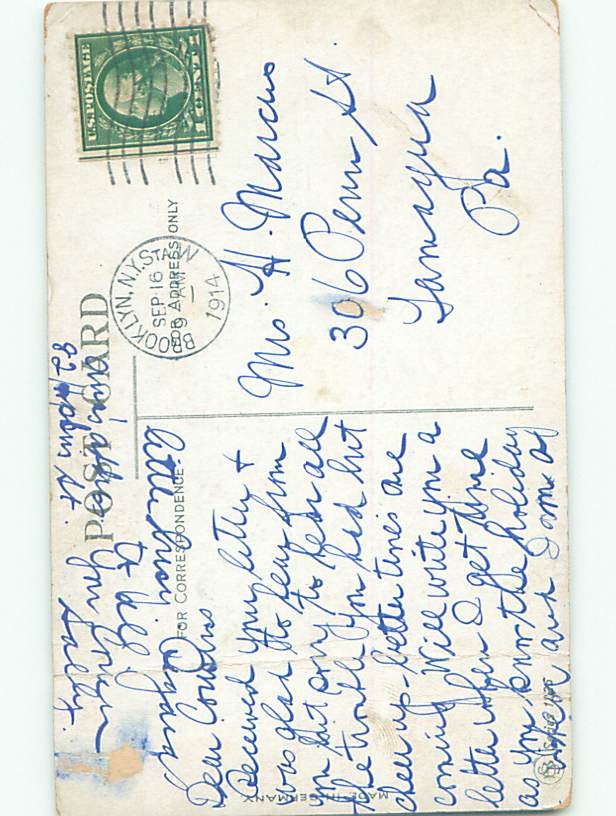 POST CARD
FOR CORRESPONDENCE
FOR ADDRESS ONLY
U.S. POSTAGE
1 CENT 1
BROOKLYN, N.Y. STA. W
SEP 16
9 AM
1914
Mrs H. Marcus
306 Penn St.
Tamaqua
Pa.
Dear Cousins
Received your letter +
was glad to hear from
you but sorry to hear all
the trouble you had but
cheer up - better times are
coming. Will write you a
letter when I get time
as you know the holiday
are and some of
little
Regards
to all
Your Cousin
Sally.
address
St.
MADE IN GERMANY
Series